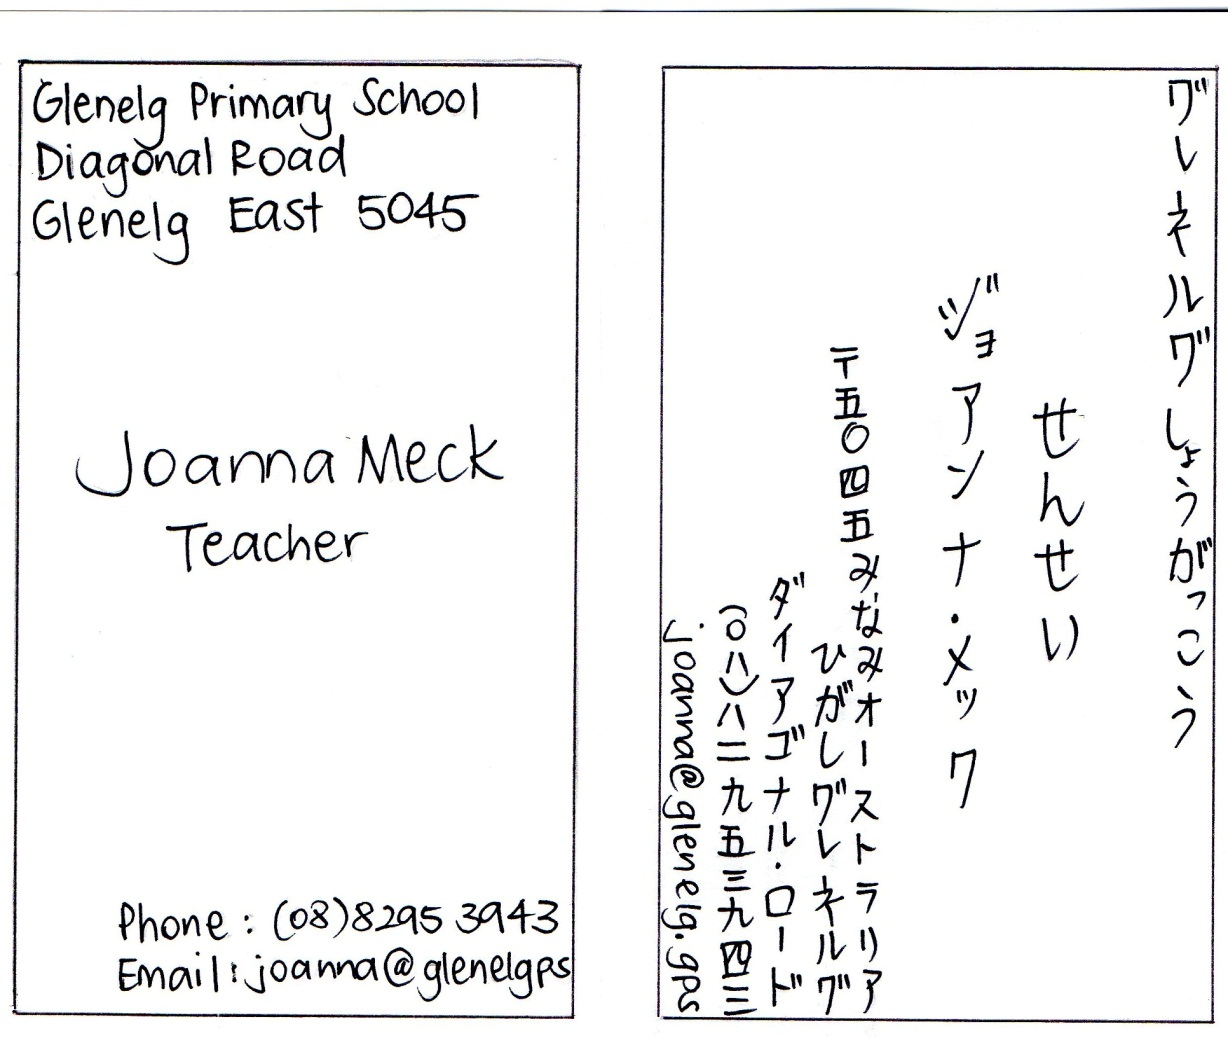 Glenelg Primary School
Diagonal Road
Glenelg East 5045
Joanna Meck
Teacher
Phone: (08)8295 3943
Email: joanna@glenelgps
グレネルグしょうがっこう
せんせい
ジョアンナ・メック
〒五〇四五みなみオーストラリア
ひがしグレネルグ
ダイアゴナル・ロード
(〇八)八二九五三九四三
joanna@glenelg.gps